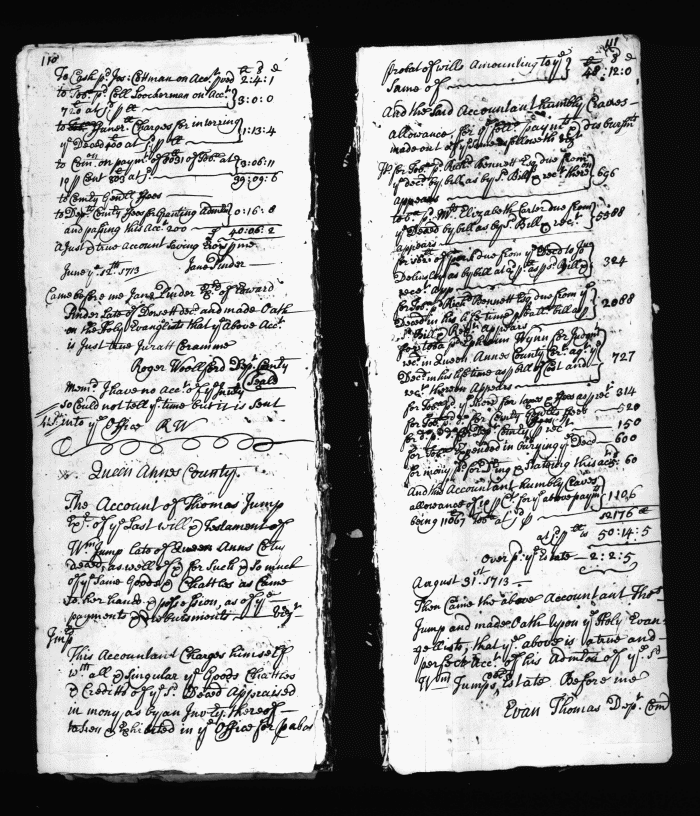 110
To Cash pd. Jos: Cottman on Acct. prved 2:4:1
to Tobo. pd. Coll Loockerman on Acct.
720 at 1d p lb 3:0:0
to Funerll. Charges for interring
ye Decead 400 at 1d p lb 1:13:4
to Comon. on paymt. of of Tobo. at
10 p Cent 803 at 1d 3:06:11
39:09:6
to Comty Genll. ffees
to Depty. Comty ffees for Granting Admtn
and passing this Acct. 200 0:16:8
40:06:2
A Just & true account Saving Errors p me
June ye 12th. 1713 Jane Pinder
Came before me Jane Pinder Ex. of Edward
Pinder Late of Dorsett decd. and made Oath
on the Holy Evangilists that ye above Acct
is Just true Juratt Coramme
Roger Woolford Depty Comty
Seale
Memd. I have no Acct. of ye Invty
so Could not tell ye time but it is Sent
into ye Office R W
Queen Annes County
The Account of Thomas Jump
Ext. of ye Last will & Testament of
Wm Jump Late of Queen Anns Coty
deced, as well of & for Such & so much
of ye Same Goods & Chattles as Came
to her hands & possession, as of ye
payments & disbursments Vizt
Jmps
This Accountant Charges himself
wth. all & Singular ye Goods Chattles
& Credits of ye sd. Decead Appraised
in mony, as by an Invty. thereof
taken & Exhibited in ye Office for
111
Probat of wills Amounting to ye
Same of 48:12:0
And the said Accountant humbly Craves
allowance, for ye foll: paymts. & disbursmts
made out of ye Same
for Tobo. pd. Richd. Bennett Esq due from
ye decd. by bill as by sd. Bill & rect. there
appears 696
to do. pd. Mrs. Elizabeth Carter due from
ye Decead by bill as by sd. Bill & rect.
appears 5988
for due from ye Decead to Jno
as by bill at 1d p lb as p sd. Bill &
rect. app 324
for Tobo. pd. Richd. Bennett Esq due from ye
Decead in his life time p bill as p
sd. Bill & Rect. appears 2088
for Tobo. pd. Ephraim Wynn
recd. in Queen Annes County agt. ye
Decd. in his life time as p Attest. and
rect. thereon Appears 727
for Tobo. pd. ye Shire for taxes & ffees as p rect 314
for Tobo. pd. for Comty Genlls ffees 520
for do. pd. Dept. Comty p rect. 150
for Tobo. Expended in burying ye Decd. 600
for mony pd. for & Stateing this acct. 60
And the Accountant humbly Craves
allowance of 10 p Ct. for ye above paymts
being 11067 Tobo. at 1106
12176 lb
at 1d p lb is 50:14:5
Over pd. ye Estate 2:2:5
August 31st. 1713
Then Came the above Accountant Thos
Jump and made Oath upon ye Holy Evan
gellists, that ye above is a true and
perfect Acct. of his Admton of ye sd
Wm Jumps Estate Before me
Evan Thomas Dept. Com